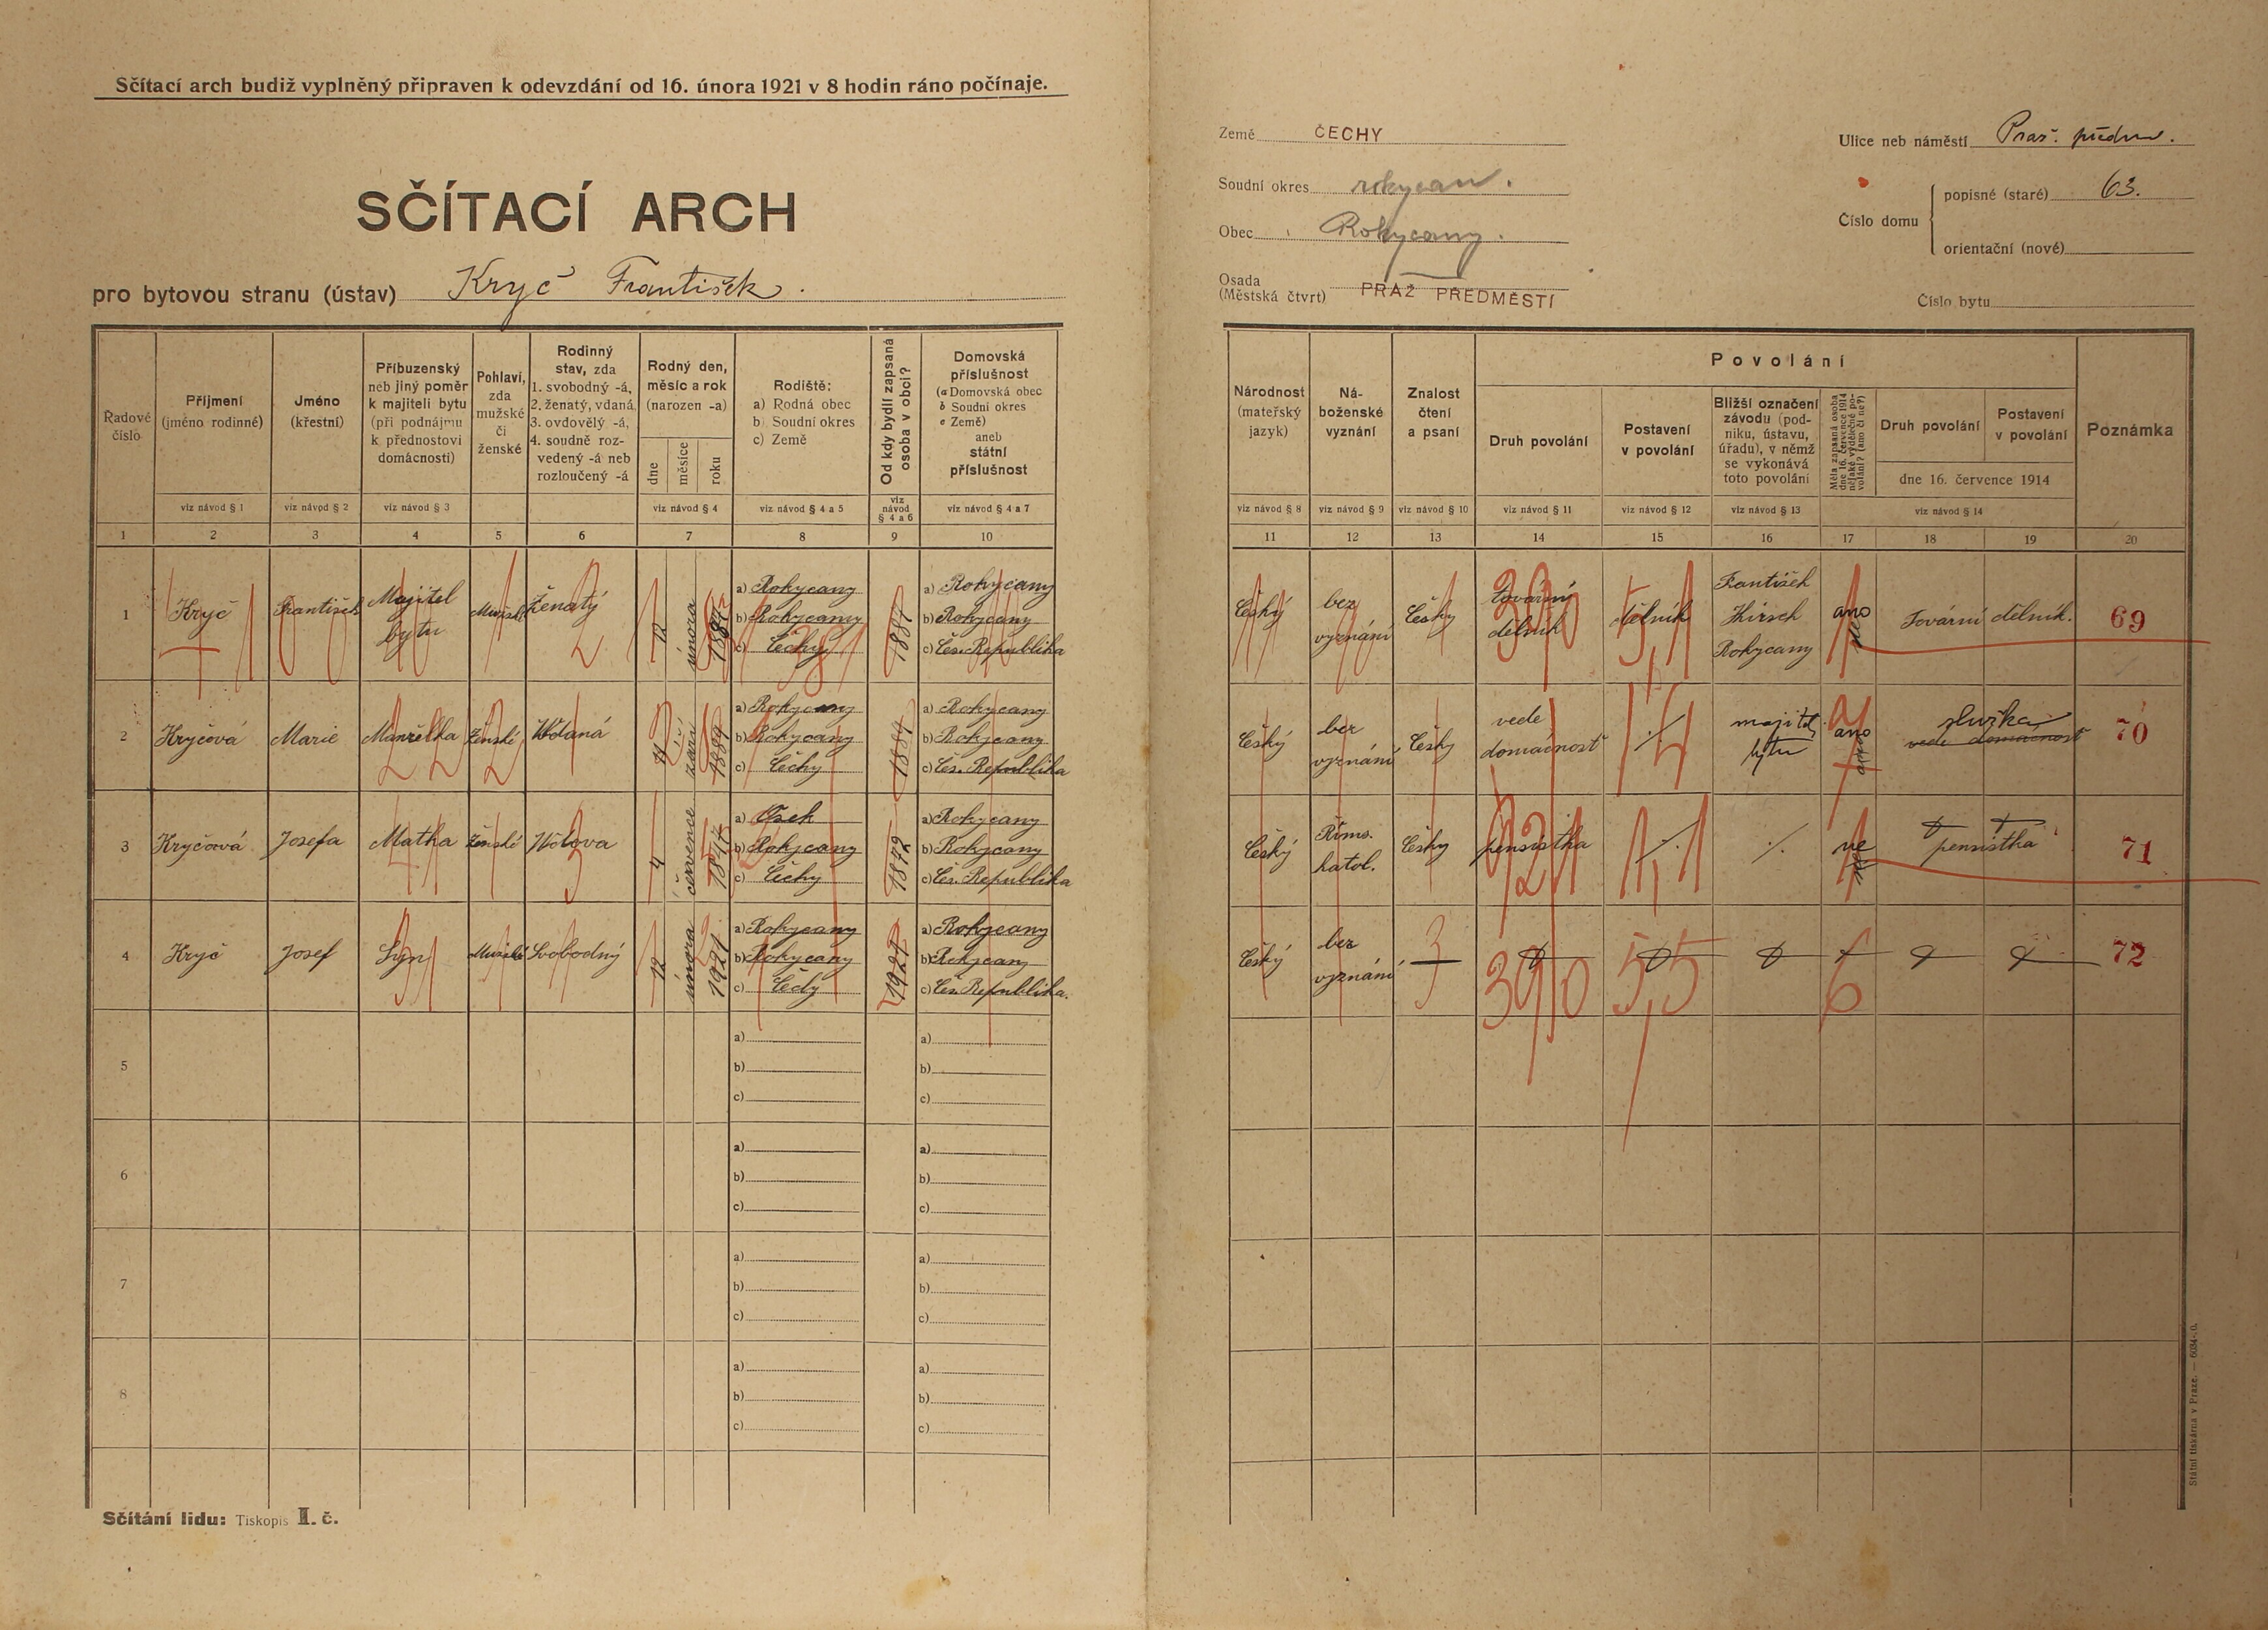 Sčítací arch budiž vyplněný připraven k odevzdání od 16. února 1921 v 8 hodin ráno počínaje.
SČÍTACÍ ARCH
pro bytovou stranu (ústav) Kryč František.
Země ČECHY
Soudní okres rokycan.
Obec Rokycany.
Osada
(Městská čtvrt) PRAŽ PŘEDMĚSTÍ
Ulice neb náměstí Praž. předm.
Číslo domu
popisné (staré) 63.
orientační (nové)
Číslo bytu
Řadové číslo
Příjmení (jméno rodinné)
Jméno (křestní)
Příbuzenský neb jiný poměr k majiteli bytu (při podnájmu k přednostovi domácnosti)
Pohlaví, zda mužské či ženské
Rodinný stav, zda 1. svobodný -á, 2. ženatý, vdaná, 3. ovdovělý -á, 4. soudně rozvedený -á neb rozloučený -á
Rodný den, měsíc a rok (narozen -a)
dne měsíce roku
Rodiště: a) Rodná obec b) Soudní okres c) Země
Od kdy bydlí zapsaná osoba v obci?
Domovská příslušnost (a Domovská obec b Soudní okres c Země) aneb státní příslušnost
Národnost (mateřský jazyk)
Náboženské vyznání
Znalost čtení a psaní
Povolání
Druh povolání
Postavení v povolání
Bližší označení závodu (podniku, ústavu, úřadu), v němž se vykonává toto povolání
Měla zapsaná osoba dne 16. července 1914 nějaké výdělečné povolání? (ano či ne?)
Druh povolání
Postavení v povolání
dne 16. července 1914
Poznámka
viz návod § 1 viz návod § 2 viz návod § 3 viz návod § 4 viz návod § 4 a 5 viz návod § 4 a 6 viz návod § 4 a 7
viz návod § 8 viz návod § 9 viz návod § 10 viz návod § 11 viz návod § 12 viz návod § 13 viz návod § 14
1 2 3 4 5 6 7 8 9 10
11 12 13 14 15 16 17 18 19 20
1 Kryč František Majitel bytu Mužské Ženatý 12 února 1887
a) Rokycany
b) Rokycany
c) Čechy
1887
a) Rokycany
b) Rokycany
c) Čes. Republika
Český bez vyznání Česky tovární dělník dělník František Hirsch Rokycany ano Tovární dělník. 69
2 Kryčová Marie Manželka Ženské Vdaná září 1889
a) Rokycany
b) Rokycany
c) Čechy
1889
a) Rokycany
b) Rokycany
c) Čes. Republika
Český bez vyznání Česky vede domácnosť majitel bytu ano služka
vede domácnosť 70
3 Kryčová Josefa Matka Ženské Vdova 4 července 1847
a) Osek
b) Rokycany
c) Čechy
1872
a) Rokycany
b) Rokycany
c) Čes. Republika
Český Říms. katol. Česky pensistka ne pensistka 71
4 Kryč Josef Syn Mužské Svobodný 12 února 1921
a) Rokycany
b) Rokycany
c) Čechy
1921
a) Rokycany
b) Rokycany
c) Čes. Republika.
Český bez vyznání 3 39/0 5,5 6 72
5
a)
b)
c)
a)
b)
c)
6
a)
b)
c)
a)
b)
c)
7
a)
b)
c)
a)
b)
c)
8
a)
b)
c)
a)
b)
c)
Sčítání lidu: Tiskopis I. č.